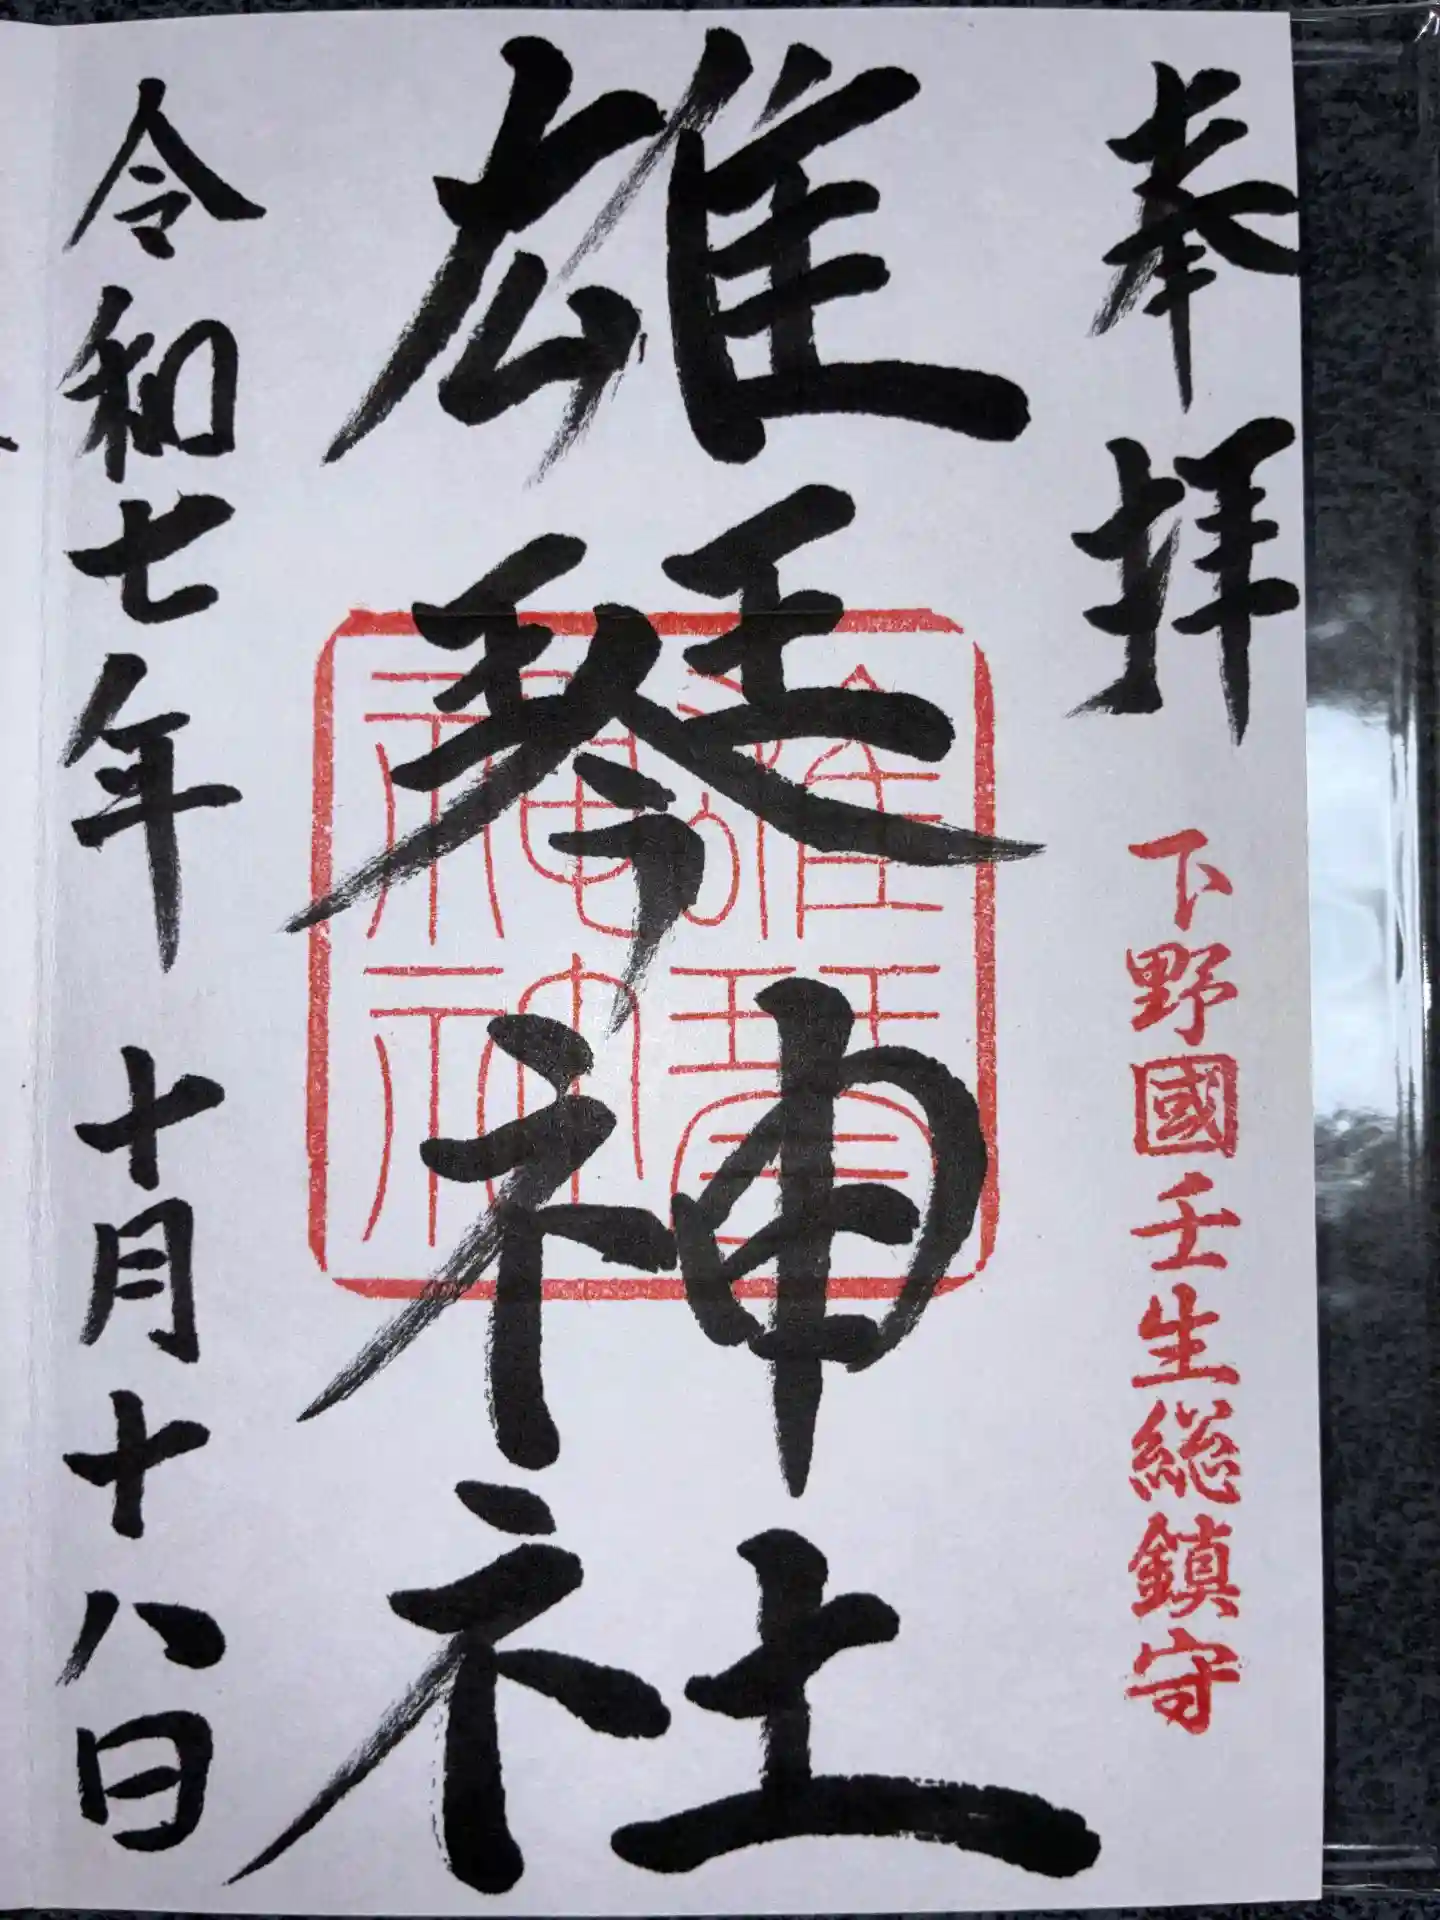 奉拝
下野國壬生総鎮守
雄琴神社
雄琴神社
令和七年十月十八日